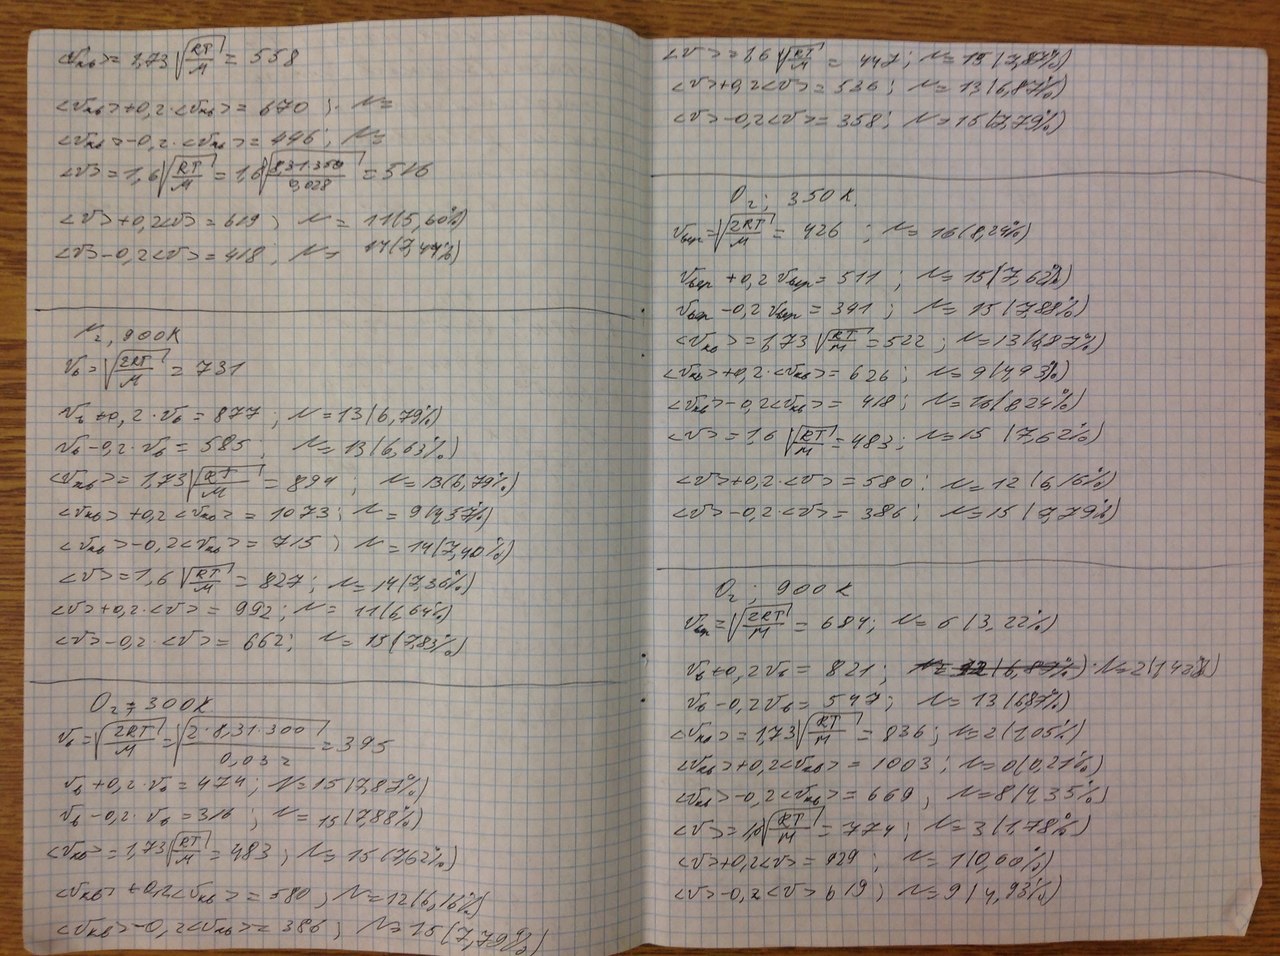 <v_кв> = 1,73 √(RT/M) = 558
<v_кв>+0,2·<v_кв> = 670 ; N =
<v_кв>-0,2·<v_кв> = 446; N=
<v> = 1,6 √(RT/M) = 1,6 √(8,31·350/0,028) = 516
<v>+0,2<v> = 619 ; N = 11(5,60%)
<v>-0,2<v> = 418 ; N = 14(7,44%)
N₂, 900K
v_в = √(2RT/M) = 731
v_в+0,2·v_в = 877 ; N = 13(6,79%)
v_в-0,2·v_в = 585 ; N = 13(6,63%)
<v_кв> = 1,73 √(RT/M) = 894 ; N = 13(6,79%)
<v_кв>+0,2<v_кв> = 1073; N = 9(4,57%)
<v_кв>-0,2<v_кв> = 715 ; N = 14(7,40%)
<v> = 1,6 √(RT/M) = 827; N = 14(7,36%)
<v>+0,2·<v> = 992; N = 11(6,64%)
<v>-0,2·<v> = 662; N = 15(7,83%)
O₂; 300K
v_в = √(2RT/M) = √(2·8,31·300/0,032) = 395
v_в+0,2·v_в = 474; N = 15(7,87%)
v_в-0,2·v_в = 316 ; N = 15(7,88%)
<v_кв> = 1,73 √(RT/M) = 483 ; N = 15(7,62%)
<v_кв>+0,2<v_кв> = 580 ; N = 12(6,16%)
<v_кв>-0,2<v_кв> = 386 ; N = 15(7,79%)
<v> = 1,6 √(RT/M) = 447; N = 15(7,87%)
<v>+0,2<v> = 536; N = 13(6,87%)
<v>-0,2<v> = 358; N = 15(7,79%)
O₂; 350K.
v_вер = √(2RT/M) = 426 ; N = 16(8,24%)
v_вер+0,2 v_вер = 511 ; N = 15(7,62%)
v_вер-0,2 v_вер = 341 ; N = 15(7,88%)
<v_кв> = 1,73 √(RT/M) = 522 ; N = 13(6,87%)
<v_кв>+0,2·<v_кв> = 626 ; N = 9(4,93%)
<v_кв>-0,2<v_кв> = 418 ; N = 16(8,24%)
<v> = 1,6 √(RT/M) = 483; N = 15 (7,62%)
<v>+0,2·<v> = 580 ; N = 12(6,16%)
<v>-0,2·<v> = 386 ; N = 15(7,79%)
O₂; 900K
v_вер = √(2RT/M) = 684; N = 6(3,22%)
v_в+0,2v_в = 821 ; N = 2(1,43%)
v_в-0,2v_в = 547; N = 13(6,87%)
<v_кв> = 1,73 √(RT/M) = 836; N = 2(1,05%)
<v_кв>+0,2<v_кв> = 1003; N = 0(0,21%)
<v_кв>-0,2<v_кв> = 669 ; N = 8(4,35%)
<v> = 1,6 √(RT/M) = 774 ; N = 3(1,78%)
<v>+0,2<v> = 929 ; N = 1(0,60%)
<v>-0,2<v> 619 ; N = 9(4,93%)